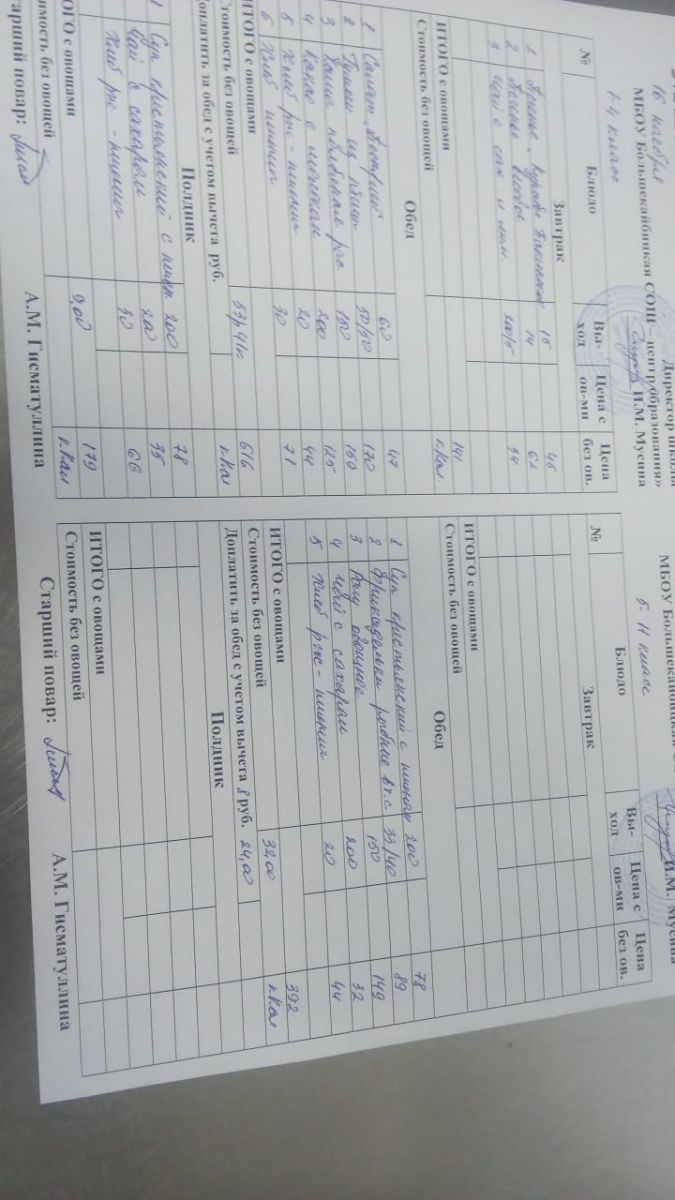 16 ноября
Директор школы
МБОУ Большекайбицкая СОШ – центр образования»
И.М. Мусина
1-4 класс
№ Блюдо Вы-ход Цена с ов-ми Цена без ов.
Завтрак
1 15 45
2 Печенье 14 62
3 Чай с сах и 200/5 34
ИТОГО с овощами 141
Стоимость без овощей к.Кал
Обед
1 Салат 60 47
2 из птицы 50/50 170
3 Каша 150 150
4 Какао с молоком 200 125
5 Хлеб рж - пшенич 20 44
6 Хлеб пшенич 30 71
ИТОГО с овощами 616
Стоимость без овощей 53р41к к.Кал
Доплатить за обед с учетом вычета руб.
Полдник
1 Суп крестьянский с 200 78
Чай с сахаром 200 35
Хлеб рж - пшенич 30 66
ИТОГО с овощами 179
Стоимость без овощей 9,00 к.Кал
Старший повар: А.М. Гисматуллина
МБОУ Большекайбицкая
И.М. Мусина
5-11 класс
№ Блюдо Вы-ход Цена с ов-ми Цена без ов.
Завтрак
ИТОГО с овощами
Стоимость без овощей
Обед
1 Суп крестьянский с 200 78
2 Фрикадельки рыбные в т.с. 35/40 89
3 Рагу овощное 150 149
4 Чай с сахаром 200 32
5 Хлеб рж - пшенич 20 44
ИТОГО с овощами 392
Стоимость без овощей 32,00 к.Кал
Доплатить за обед с учетом вычета 8 руб. 24,00
Полдник
ИТОГО с овощами
Стоимость без овощей
Старший повар: А.М. Гисматуллина